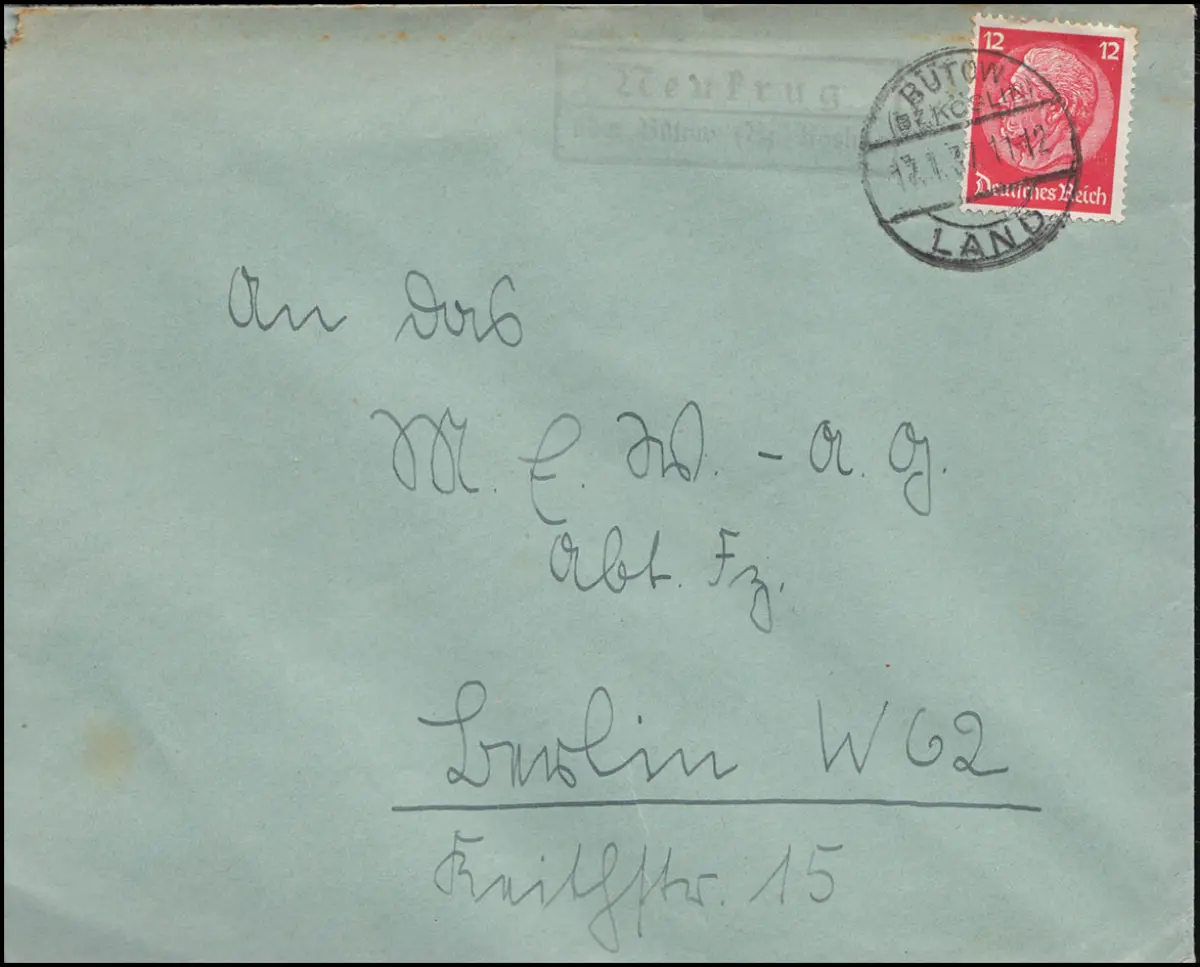 12 12
Deutsches Reich
BÜTOW
(BZ. KÖSLIN)
11-12
LAND
Neukrug
über Bütow (Bz. Köslin)
An das
M. E. W. - A. G.
Abt. Fz.
Berlin W 62
Keithstr. 15